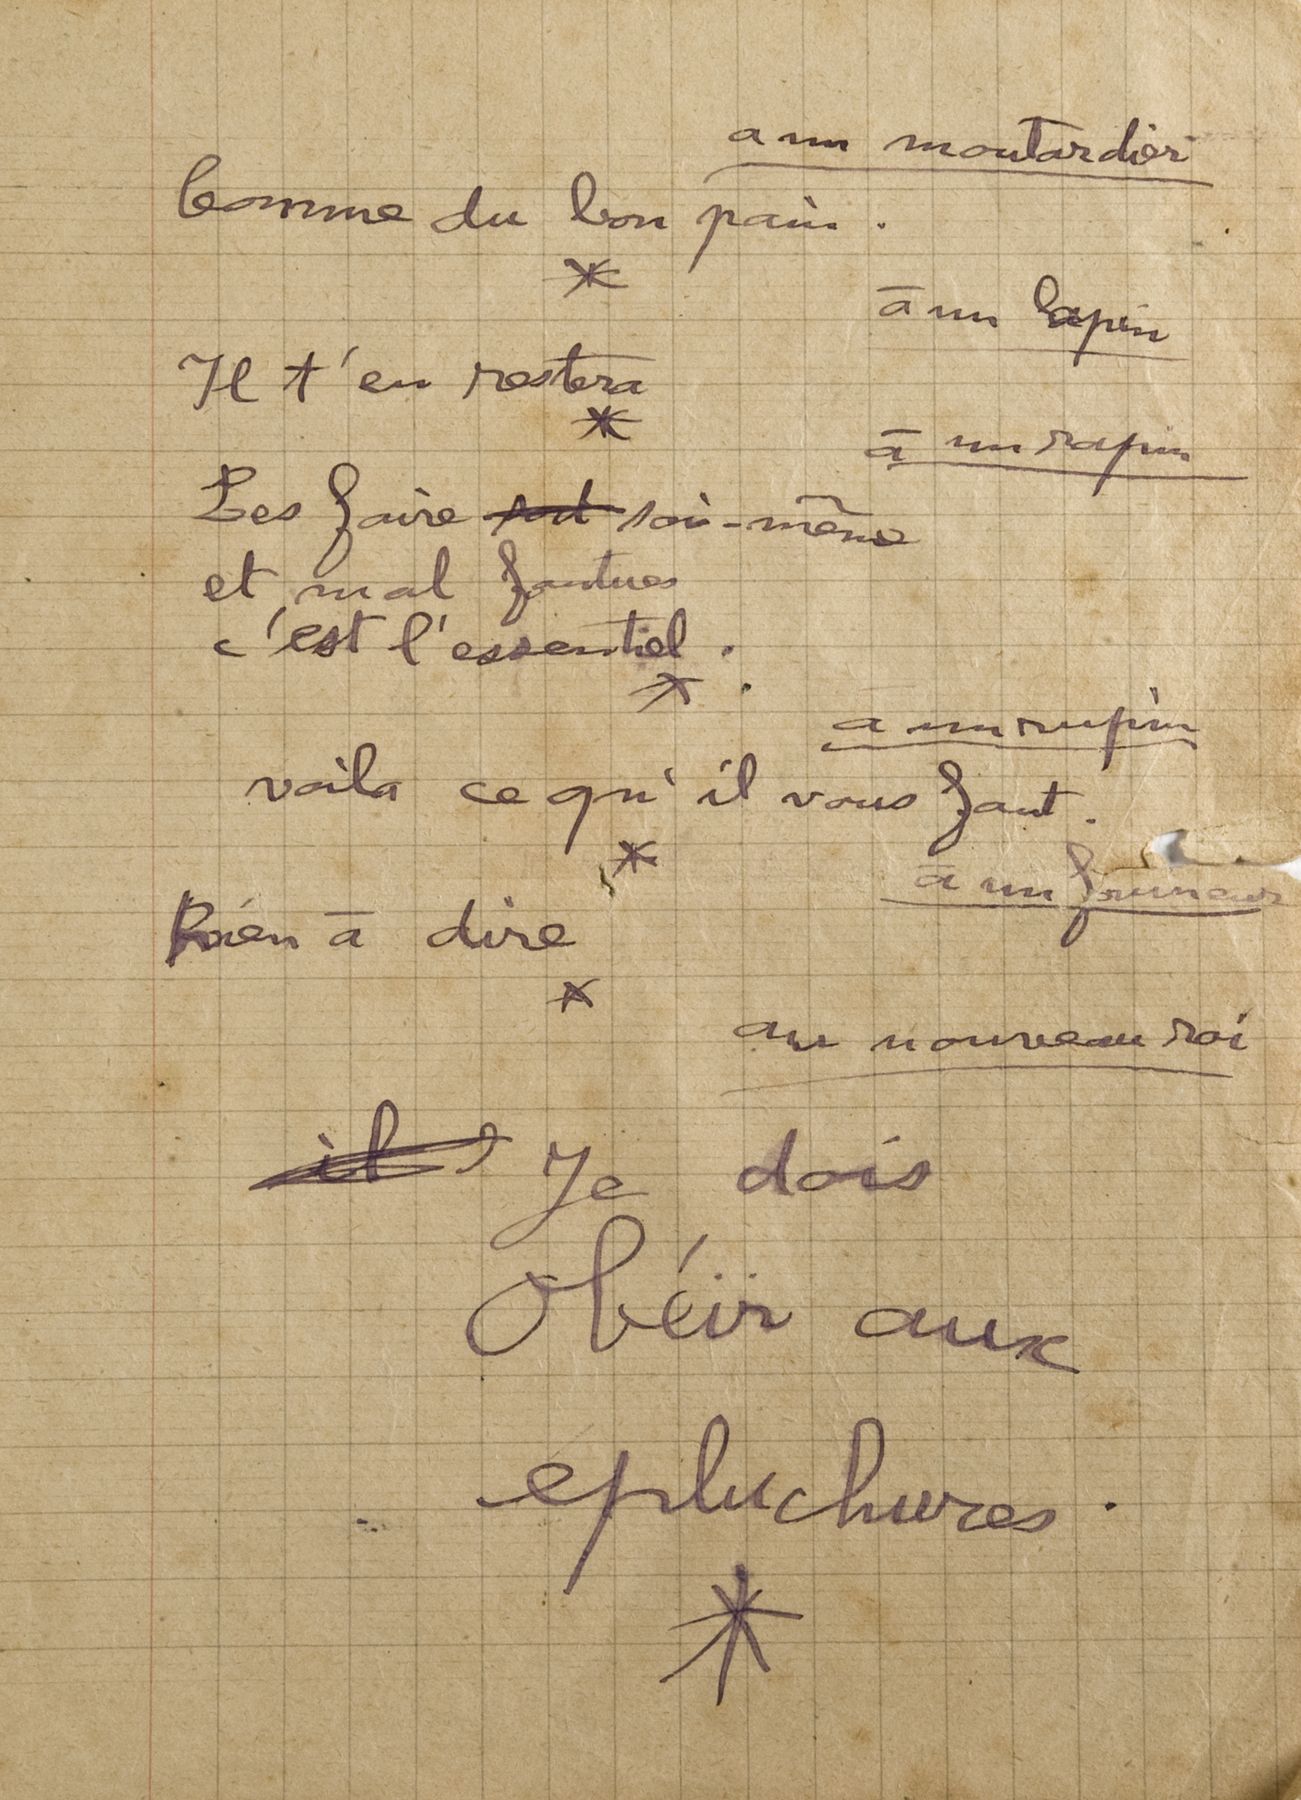 a un moutardier
Comme du bon pain.
*
à un lapin
Il t'en restera
*
à un rapin
Les faire soi-même
et mal foutues
c'est l'essentiel.
*
a un rupin
voila ce qu'il vous faut.
*
à un fumeur
Rien à dire
*
au nouveau roi
il Je dois
Obéïr aux
epluchures.
*